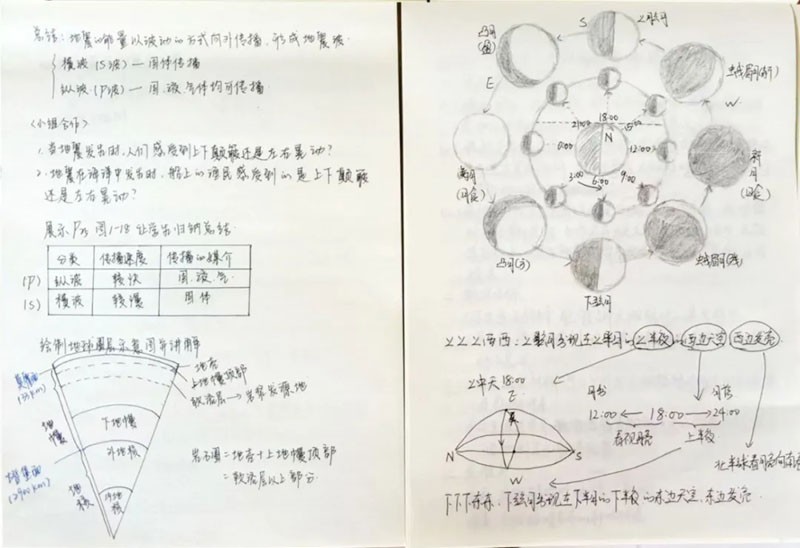 总结:地震的能量以波动的方式向外传播,形成地震波
横波(S波)— 固体传播
纵波(P波)— 固、液、气体均可传播
<小组合作>
1. 当地震发生时,人们感觉到上下颠簸还是左右晃动?
2. 地震在海洋中发生时,船上的渔民感觉到的是上下颠簸
还是左右晃动?
展示P23图1-18让学生归纳总结
分类 传播速度 传播的媒介
(P) 纵波 较快 固、液、气
(S) 横波 较慢 固体
绘制地球圈层示意图并讲解
莫霍面
地壳
上地幔顶部
软流层→岩浆发源地
地幔
下地幔
外地核
古登堡面
(2900km)
地核
内地核
岩石圈=地壳+上地幔顶部
=软流层以上部分
凸月
S
上弦月
E
W
蛾眉月(新)
新月
21:00
18:00
15:00
N
0:00
12:00
3:00
6:00
9:00
满月
凸月
下弦月
蛾眉月(残)
上上上西西:上弦月出现在上半月的上半夜的西边天空 西边发亮
上中天18:00
月出
月落
12:00 ← 18:00 → 24:00
看不见
上半夜
E
N
S
W
下下下东东,下弦月出现在下半月的下半夜的东边天空,东边发亮